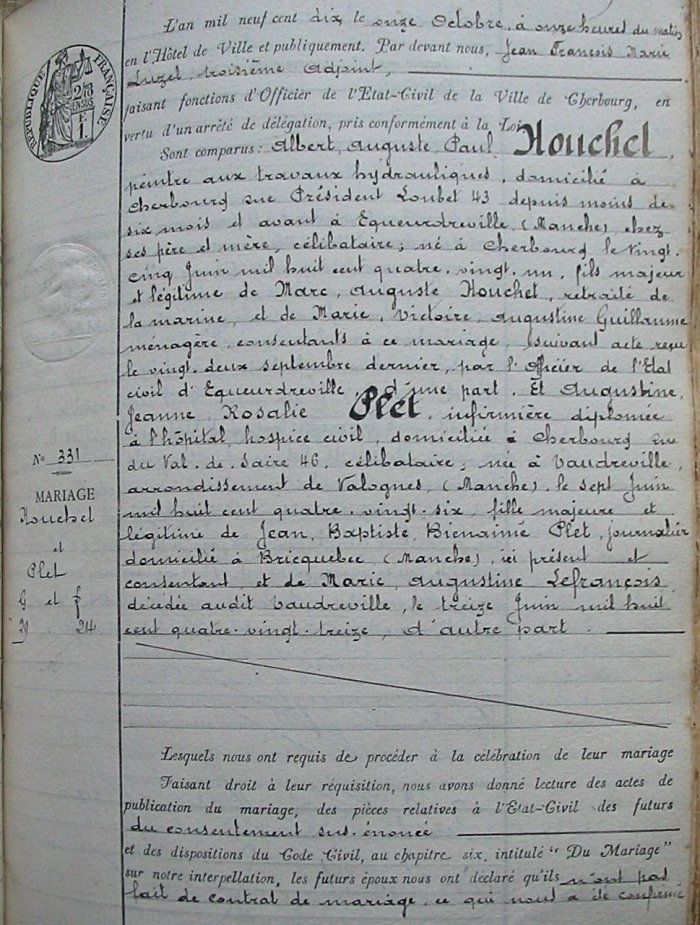 L'an mil neuf cent dix le onze Octobre, à onze heures du matin
en l'Hôtel de Ville et publiquement. Par devant nous, Jean François Marie
Luzel, troisième Adjoint,
faisant fonctions d'Officier de l'Etat-Civil de la Ville de Cherbourg, en
vertu d'un arrêté de délégation, pris conformément à la Loi
Sont comparus : Albert, Auguste Paul Houchet,
peintre aux travaux hydrauliques, domicilié à
Cherbourg rue Président Loubet 43 depuis moins de
six mois et avant à Equeurdreville, (Manche) chez
ses père et mère, célibataire ; né à Cherbourg le vingt-
cinq Juin mil huit cent quatre-vingt-un, fils majeur
et légitime de Marc, Auguste Houchet, retraité de
la marine, et de Marie, Victoire, Augustine Guillaume
ménagère, consentants à ce mariage, suivant acte reçu
le vingt-deux septembre dernier, par l'Officier de l'Etat
civil d'Equeurdreville, d'une part. Et Augustine,
Jeanne, Rosalie Plet, infirmière diplomée
à l'hôpital, hospice civil, domiciliée à Cherbourg rue
du Val-de-Saire 46, célibataire ; née à Vaudreville,
arrondissement de Valognes, (Manche), le sept Juin
mil huit cent quatre-vingt-six, fille majeure et
légitime de Jean, Baptiste, Bienaimé Plet, journalier
domicilié à Bricquebec (Manche), ici présent et
consentant, et de Marie, Augustine Lefrançois
décédée audit Vaudreville, le treize Juin mil huit
cent quatre-vingt-treize, d'autre part.
REPUBLIQUE FRANÇAISE
No 331
MARIAGE
Houchet
et
Plet
G et f
24
Lesquels nous ont requis de procéder à la célébration de leur mariage
Faisant droit à leur réquisition, nous avons donné lecture des actes de
publication du mariage, des pièces relatives à l'Etat-Civil des futurs
du consentement sus-énoncé
et des dispositions du Code Civil, au chapitre six, intitulé “ Du Mariage ”
sur notre interpellation, les futurs époux nous ont déclaré qu'ils n'ont pas
fait de contrat de mariage, ce qui nous a été confirmé